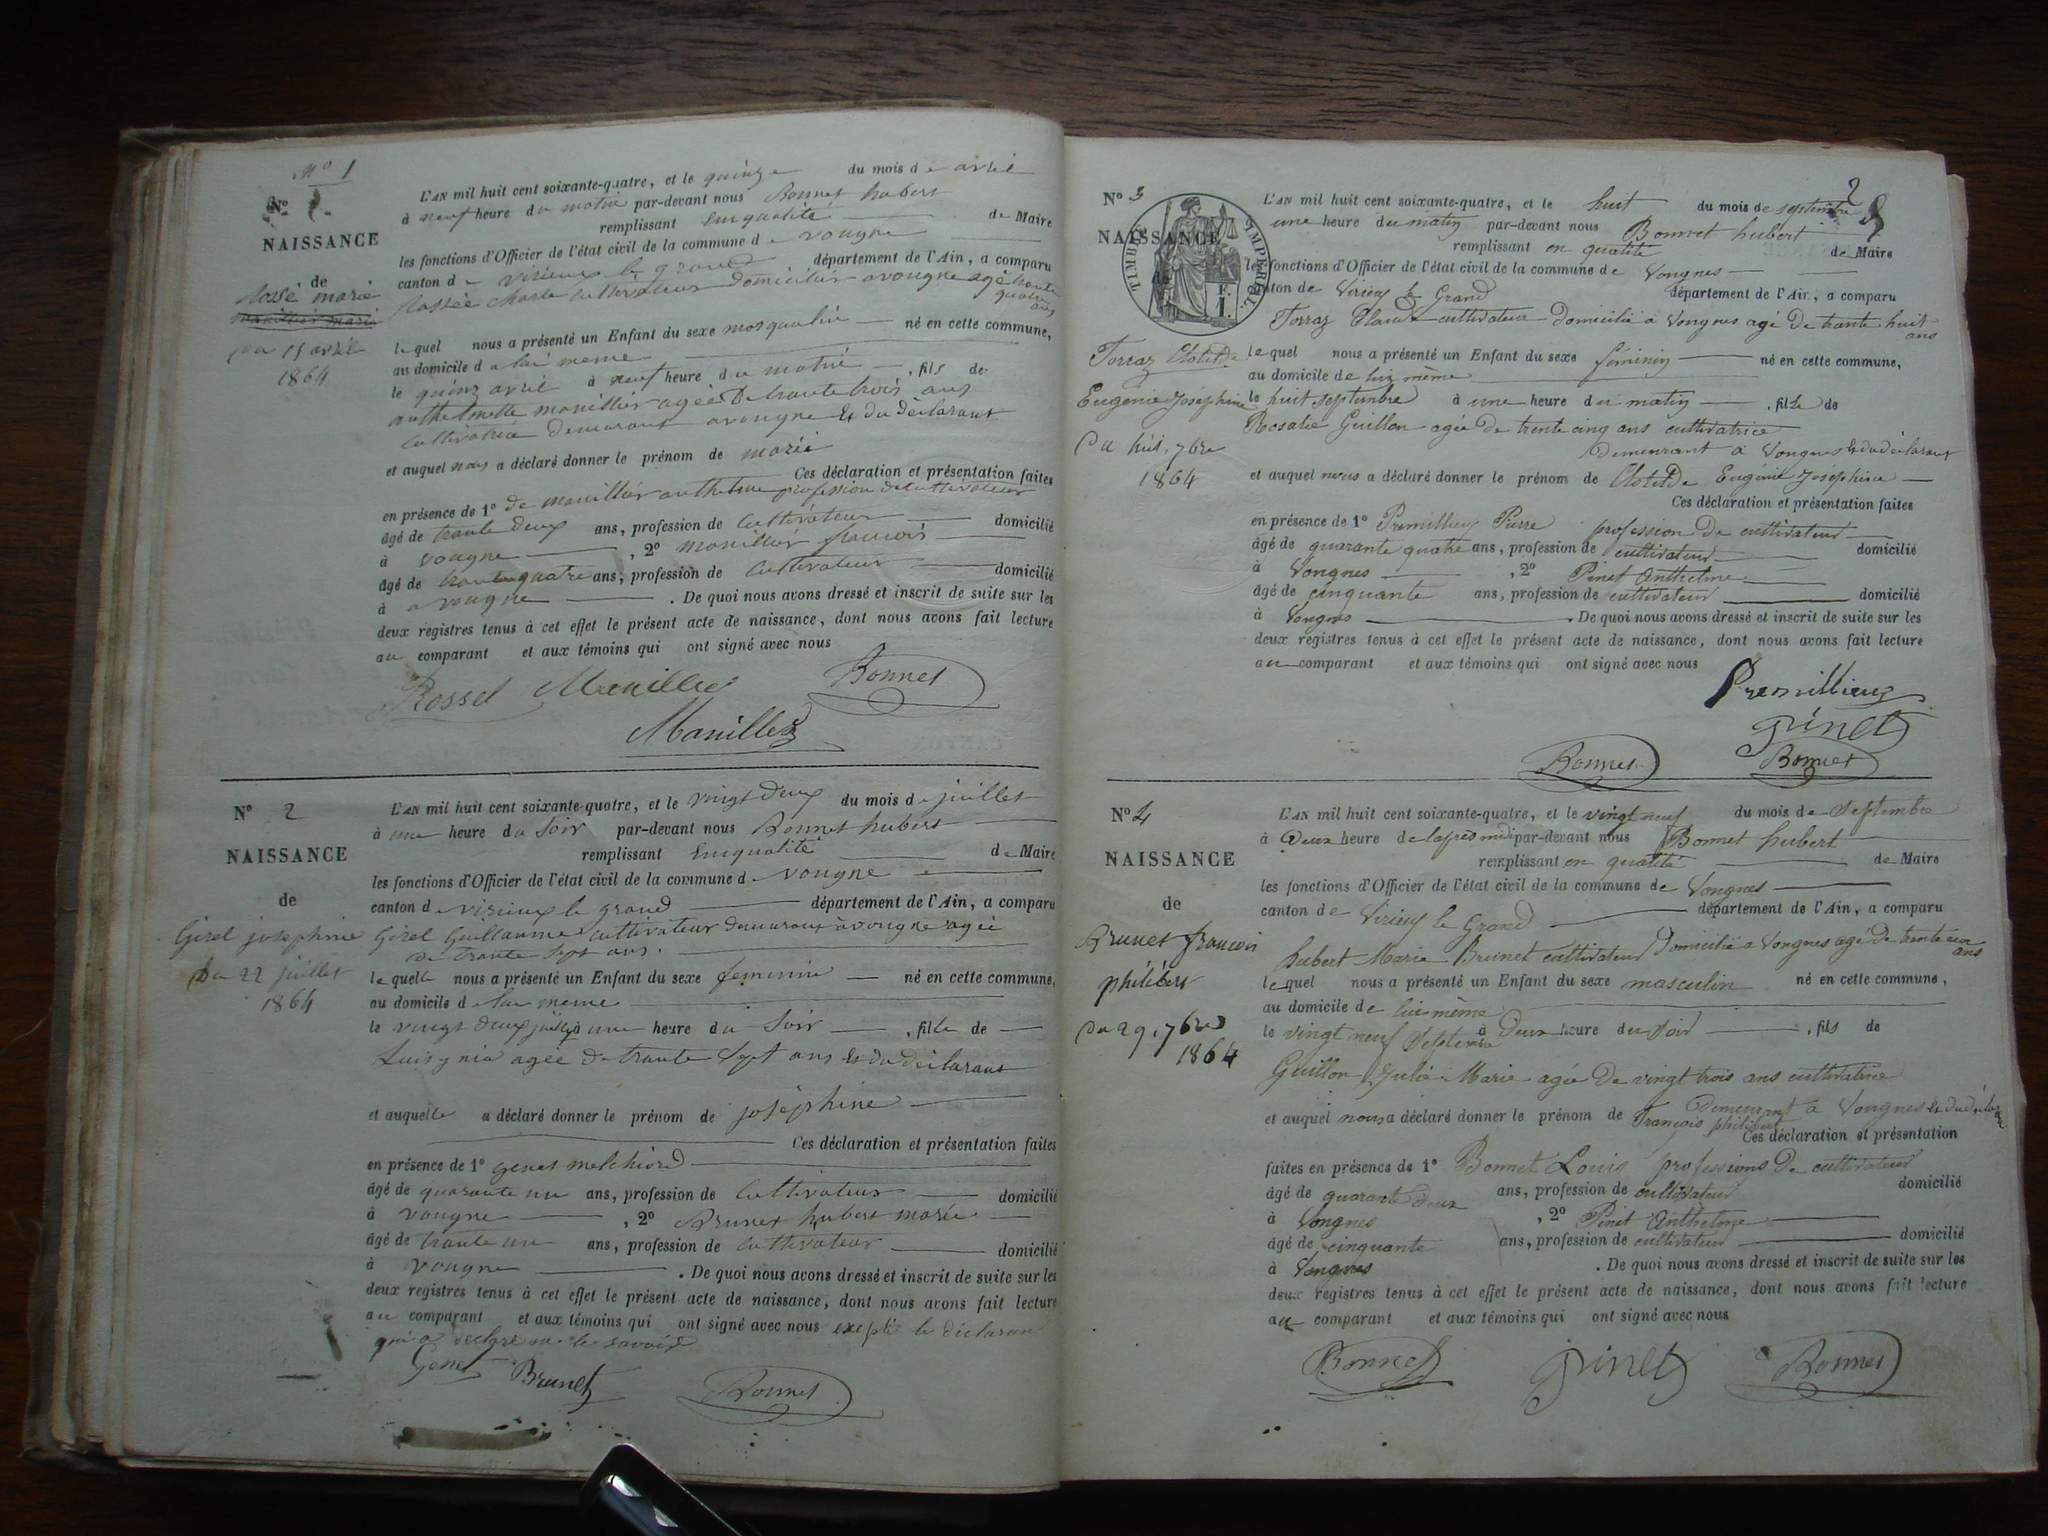 No 1
No
NAISSANCE
de
Rossé marie
Du 15 avril
1864
L'AN mil huit cent soixante-quatre, et le quinze du mois de avril
à neuf heure du matin par-devant nous Bonnet hubert
remplissant enqualité de Maire
les fonctions d'Officier de l'état civil de la commune de vougne
canton de virieux le grand département de l'Ain, a comparu
cultivateur domicilier avougne agé trante
quatre
ans
le quel nous a présenté un Enfant du sexe masqualin né en cette commune,
au domicile de lui meme
le quinz avril à neuf heure du matin, fils de
anthelmette manillier agée De trante trois ans
cultivatrice demurant avougne Et du déclarant
et auquel nous a déclaré donner le prénom de marié
Ces déclaration et présentation faites
en présence de 1º de manillier anthelme profession de cultivateur
âgé de trante deux ans, profession de cultivateur domicilié
à vougne, 2º manillier francois
âgé de trante quatre ans, profession de cultivateur domicilié
à avougne. De quoi nous avons dressé et inscrit de suite sur les
deux registres tenus à cet effet le présent acte de naissance, dont nous avons fait lecture
au comparant et aux témoins qui ont signé avec nous
Rossel Manillier Bonnet
Manillier
Nº 2
NAISSANCE
de
Girel josephine
Du 22 juillet
1864
L'AN mil huit cent soixante-quatre, et le vingt deux du mois de juillet
à une heure du soir par-devant nous Bonnet hubert
remplissant enqualité de Maire
les fonctions d'Officier de l'état civil de la commune de vougne
canton de virieux le grand département de l'Ain, a comparu
Girel Guillaume cultivateur demurant à vougne agée
de trante sept ans.
le quel nous a présenté un Enfant du sexe feminin né en cette commune,
au domicile de lui meme
le vingt deux juillet à une heure du soir, fille de
agée de trante sept ans Et du déclarant
et auquelle a déclaré donner le prénom de joséphine
Ces déclaration et présentation faites
en présence de 1º genet melchiord
âgé de quarante un ans, profession de cultivateur domicilié
à vougne, 2º Brunet hubert marie
âgé de trante un ans, profession de cultivateur domicilié
à vougne. De quoi nous avons dressé et inscrit de suite sur les
deux registres tenus à cet effet le présent acte de naissance, dont nous avons fait lecture
au comparant et aux témoins qui ont signé avec nous exepté le déclarant
qui a declare ne le savoire
Genet Brunet Bonnet
2
Nº 3
NAISSANCE
TIMBRE IMPERIAL
Torraz Clotilde
Eugénie Joséphine
Du huit 7bre
1864
L'AN mil huit cent soixante-quatre, et le huit du mois de septembre
à une heure du matin par-devant nous Bonnet hubert
remplissant en qualité de Maire
les fonctions d'Officier de l'état civil de la commune de Vongnes
canton de Virieu le Grand département de l'Ain, a comparu
Torraz Claude cultivateur domicilié à Vongnes agé De trante huit
ans
le quel nous a présenté un Enfant du sexe féminin né en cette commune,
au domicile de lui même
le huit septembre à une heure du matin, fille de
Rosalie Guillon agée De trente cinq ans cultivatrice
Demeurant à Vongnes Et du déclarant
et auquel nous a déclaré donner le prénom de Clotilde Eugénie Joséphine
Ces déclaration et présentation faites
en présence de 1º Premillieux Pierre profession De cultivateur
âgé de quarante quatre ans, profession de cultivateur domicilié
à Vongnes, 2º Pinet Anthelme
âgé de cinquante ans, profession de cultivateur domicilié
à Vongnes. De quoi nous avons dressé et inscrit de suite sur les
deux registres tenus à cet effet le présent acte de naissance, dont nous avons fait lecture
au comparant et aux témoins qui ont signé avec nous
Premillieux
Pinet
Bonnet Bonnet
Nº 4
NAISSANCE
de
Brunet francois
philibert
Du 29, 7bre
1864
L'AN mil huit cent soixante-quatre, et le vingt neuf du mois de Septembre
à Deux heure de lapres midi par-devant nous Bonnet hubert
remplissant en qualité de Maire
les fonctions d'Officier de l'état civil de la commune de Vongnes
canton de Virieu le Grand département de l'Ain, a comparu
hubert Marie Brunet cultivateur Domicilié à Vongnes agé de trente un
ans
le quel nous a présenté un Enfant du sexe masculin né en cette commune,
au domicile de lui même
le vingt neuf Septembre à Deux heure du soir, fils de
Guillon Julie Marie agée De vingt trois ans cultivatrice
demeurant à Vongnes Et du déclarant
et auquel nous a déclaré donner le prénom de François philibert
Ces déclaration et présentation
faites en présence de 1º Bonnet Louis professions De cultivateur
âgé de quarante deux ans, profession de cultivateur domicilié
à Vongnes, 2º Pinet Anthelme
âgé de cinquante ans, profession de cultivateur domicilié
à Vongnes. De quoi nous avons dressé et inscrit de suite sur les
deux registres tenus à cet effet le présent acte de naissance, dont nous avons fait lecture
au comparant et aux témoins qui ont signé avec nous
Bonnet Pinet Bonnet